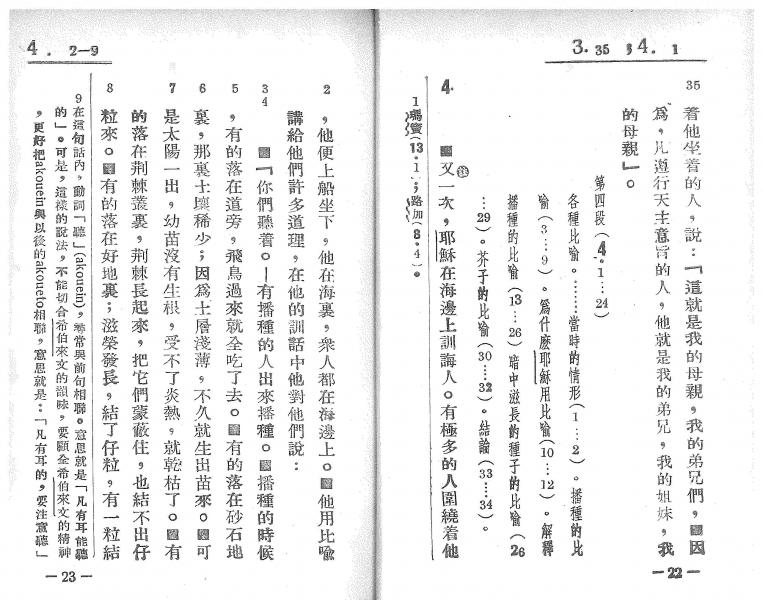 3. 35 ; 4. 1
35 着他坐着的人，說：「這就是我的母親，我的弟兄們，▩因
爲，凡遵行天主意旨的人，他就是我的弟兄，我的姐妹，我
的母親」。
第四段（4，1…24）
各種比喻。……當時的情形（1…2）。播種的比
喻（3…9）。爲什麽耶穌用比喻（10…12）。解釋
播種的比喻（13…26）暗中滋長的種子的比喻（26
…29）。芥子的比喻（30…32）。結論（33…34）。
4. ▩又一次，耶穌在海邊上訓誨人。有極多的人圍繞着他
1 瑪竇（13．1）；路加（8．4）。
—22—
4. 2—9
2 ，他便上船坐下，他在海裏，衆人都在海邊上。▩他用比喻
講給他們許多道理，在他的訓話中他對他們說：
3 4 ▩「你們聽着。—有播種的人出來播種。▩播種的時候
5 ，有的落在道旁，飛鳥過來就全吃了去。▩有的落在砂石地
6 裏，那裏土壤稀少；因爲土層淺薄，不久就生出苗來。▩可
7 是太陽一出，幼苗沒有生根，受不了炎熱，就乾枯了。▩有
的落在荆棘叢裏，荆棘長起來，把它們蒙蔽住，也結不出仔
8 粒來。▩有的落在好地裏；滋榮發長，結了仔粒，有一粒結
9 在這句話內，動詞「聽」(akouein)，尋常與前句相聯。意思就是「凡有耳能聽
的」。可是，這樣的說法，不能切合希伯來文的韻味，要顧全希伯來文的精神
，更好把akouein與以後的akoueto相聯，意思就是：「凡有耳的，要注意聽」
—23—